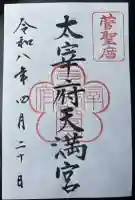 菅聖庿
太宰府天満宮
令和八年四月二十日